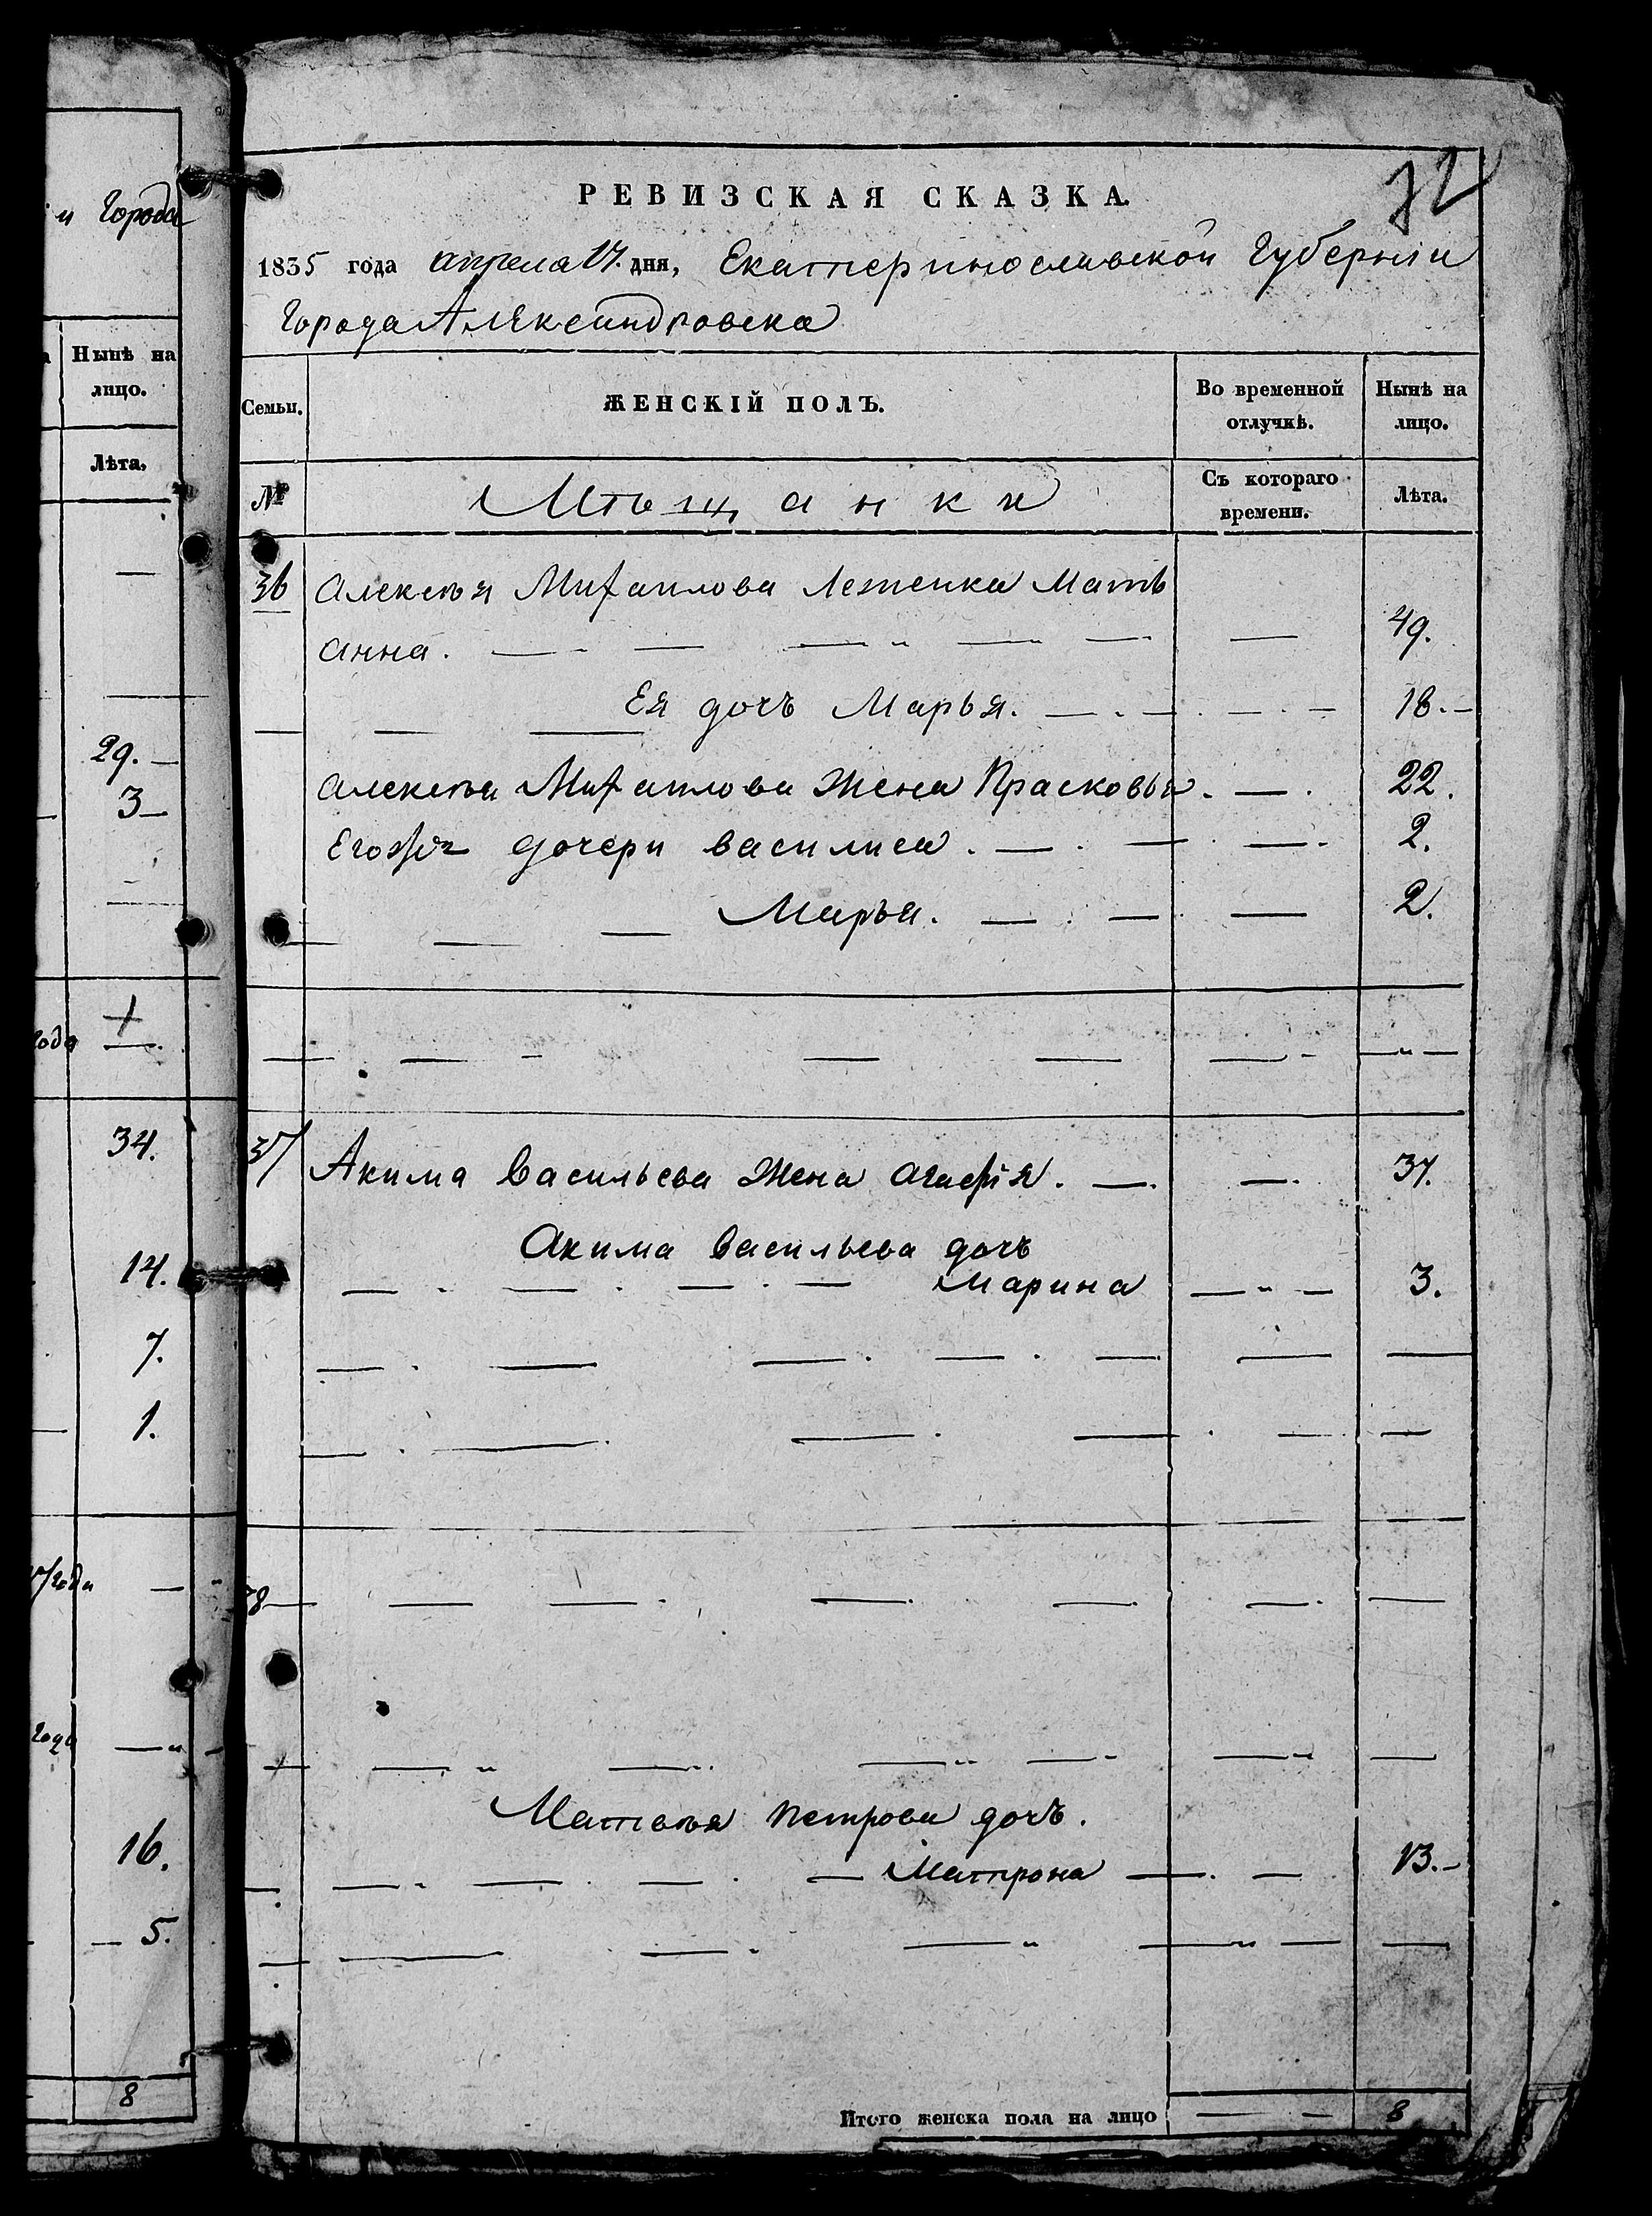 и Города
Нынѣ на
лицо.
Лѣта,
29.
3
года
34.
14.
7.
1.
года
года
16.
5.
8
72
РЕВИЗСКАЯ СКАЗКА.
1835 года апреля 17. дня, Екатеринославской Губерніи
Города Александровска
Семьи. ЖЕНСКІЙ ПОЛЪ. Во временной отлучкѣ. Нынѣ на лицо.
№ Мѣщанки Съ котораго времени. Лѣта.
36 Алексѣя Михаилова Леженка Мать
Анна. 49.
Ея дочь Марья. 18.
Алексѣя Михаилова Жена Прасковья. 22.
Его дочери Василиса. 2.
Марья. 2.
37 Акима Васильева Жена Агафія. 37.
Акима Васильева дочь
Марина 3.
38
Матвѣя Петрова дочь.
Матрона 13.
Итого женска пола на лицо 8